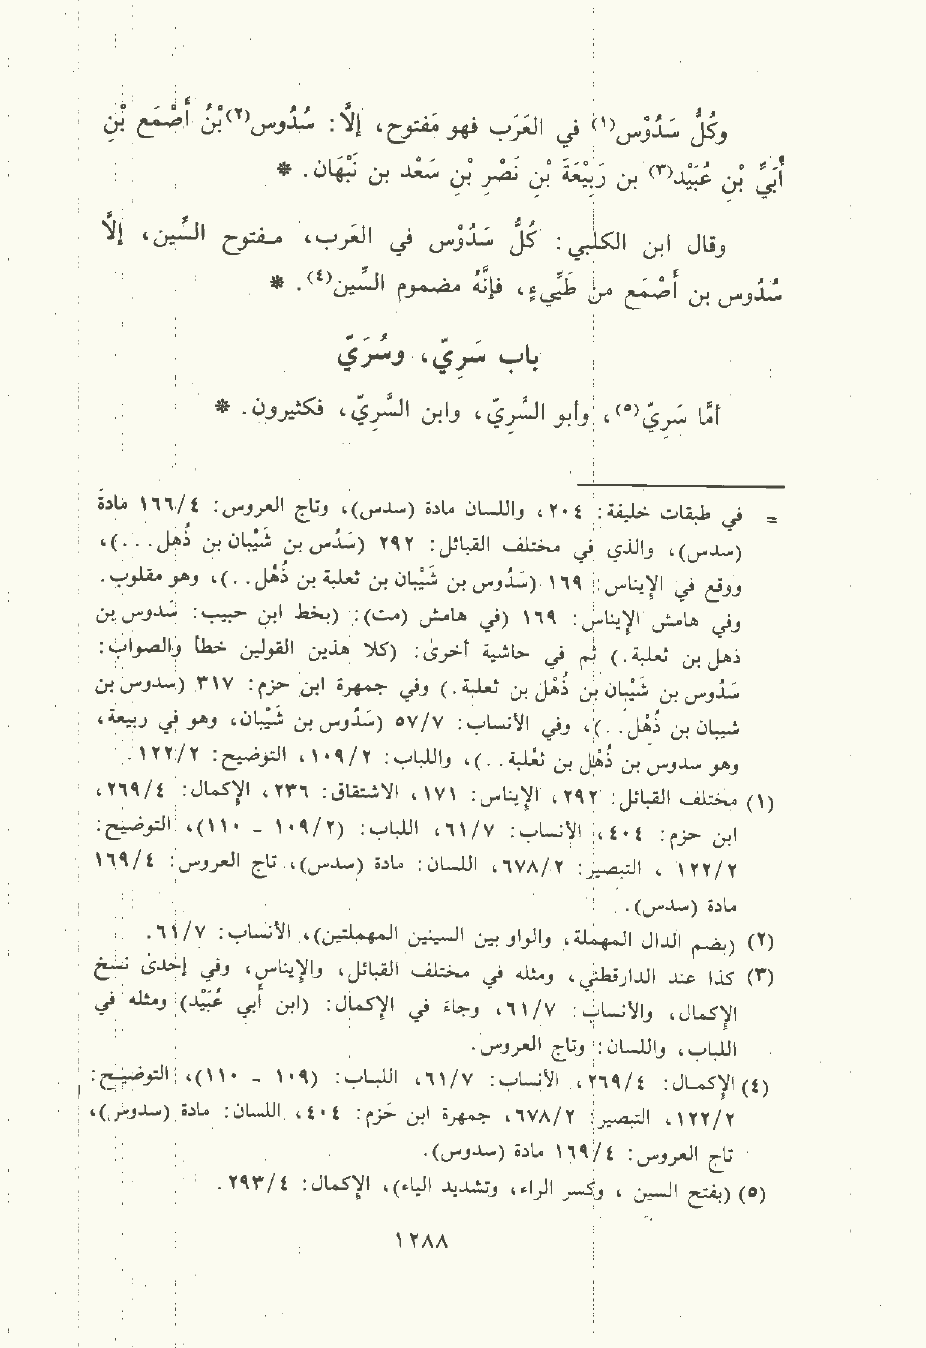 وكُلُّ سَدُوْس(١) في العَرَب مَفتوح، إلَّا: سُدُوس(٢) بْنُ أَصْمَع بْنِ
أُبَيِّ بْنِ عُبَيْد(٣) بن رَبِيْعَةَ بْنِ نَصْرِ بْنِ سَعْد بن نَبْهَان. *
وقال ابن الكلبي: كُلُّ سَدُوْس في العَرب، مفتوح السِّين، إلَّا
سُدُوس بن أَصْمَع من طَيِّيءٍ، فإنَّهُ مضموم السِّين(٤). *
باب سَرِيّ، وسُرَيّ
أمَّا سَرِيّ(٥)، وأبو السَّرِيّ، وابن السَّرِيّ، فكثيرون. *
= في طبقات خليفة: ٢٠٤، واللسان مادة (سدس)، وتاج العروس: ١٦٦/٤ مادةَ
(سدس)، والذي في مختلف القبائل: ٢٩٢ (سَدُس بن شَيْبان بن ذُهل. . .)،
ووقع في الإيناس: ١٦٩ (سَدُوس بن شَيْبان بن ثعلبة بن ذُهْل. .)، وهو مقلوب.
وفي هامش الإيناس: ١٦٩ (في هامش (مت): (بخط ابن حبيب: سَدوس بن
ذهل بن ثعلبة.) ثم في حاشية أخرىٰ: (كلا هذين القولين خطأ والصواب:
سَدُوس بن شَيْبان بن ذُهْل بن ثعلبة.) وفي جمهرة ابن حزم: ٣١٧ (سدوس بن
شيبان بن ذُهْل. .)، وفي الأنساب: ٥٧/٧ (سَدُوس بن شَيْبان، وهو في ربيعة،
وهو سدوس بن ذُهْل بن ثعْلبة. .)، واللباب: ١٠٩/٢، التوضيح: ١٢٢/٢.
(١) مختلف القبائل: ٢٩٢، الإيناس: ١٧١، الاشتقاق: ٢٣٦، الإكمال: ٢٦٩/٤،
ابن حزم: ٤٠٤، الأنساب: ٦١/٧، اللباب: (١٠٩/٢ - ١١٠)، التوضيح:
١٢٢/٢ ، التبصير: ٦٧٨/٢، اللسان: مادة (سدس)، تاج العروس: ١٦٩/٤
مادة (سدس).
(٢) (بضم الدال المهملة، والواو بين السينين المهملتين)، الأنساب: ٦١/٧.
(٣) كذا عند الدارقطني، ومثله في مختلف القبائل، والإيناس، وفي إحدىٰ نسخ
الإكمال، والأنساب: ٦١/٧، وجاءَ في الإكمال: (ابن أبي عُبَيْد) ومثله في
اللباب، واللسان: وتاج العروس.
(٤) الإكمال: ٢٦٩/٤، الأنساب: ٦١/٧، اللباب: (١٠٩ - ١١٠)، التوضيح:
١٢٢/٢، التبصير: ٦٧٨/٢، جمهرة ابن حزم: ٤٠٤، اللسان: مادة (سدوس)،
تاج العروس: ١٦٩/٤ مادة (سدوس).
(٥) (بفتح السين ، وكسر الراء، وتشديد الياء)، الإكمال: ٢٩٣/٤.
١٢٨٨